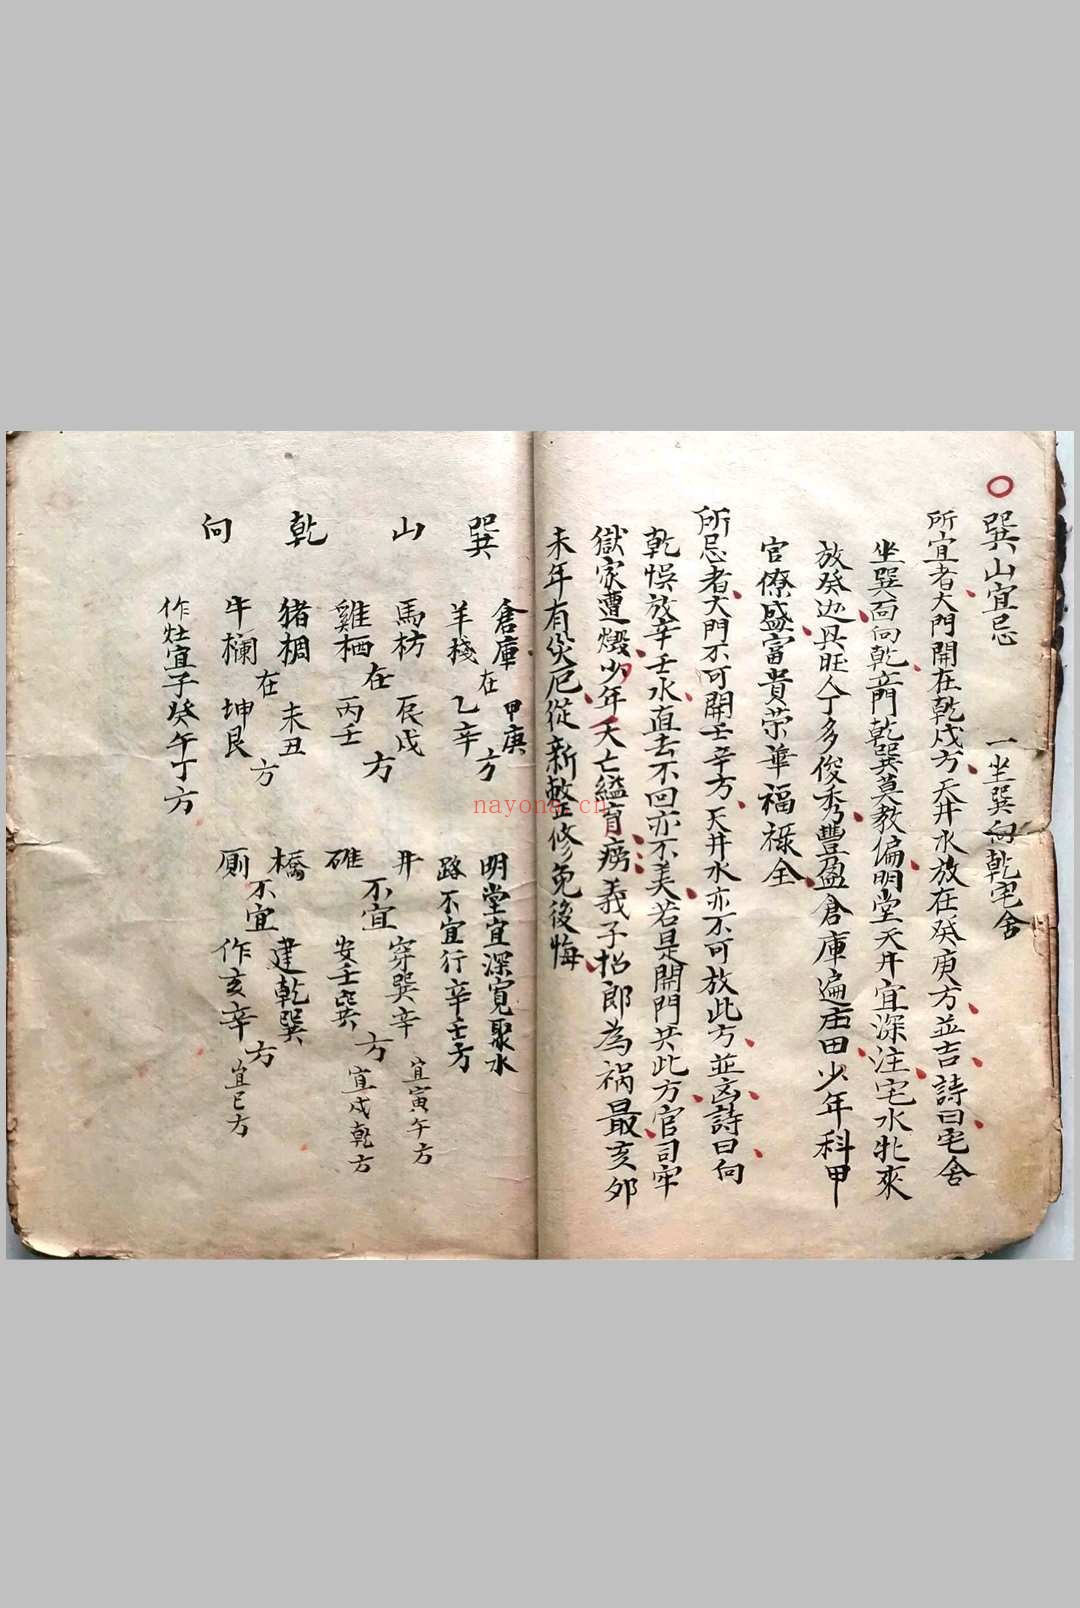 巽山宜忌　一坐巽向乾宅舍
所宜者大門開在乾戌方天井水放在癸庚方並吉詩曰宅舍
坐巽面向乾音門乾巽莫教偏明堂天井宜深注宅水牝來
放癸边具旺人丁多俊秀豐盈倉庫遍庄田少年科甲
官僚盛富貴荣華福祿全
所忌者大門不可開壬辛方天井水亦不可放此方並凶詩曰向
乾悞放辛壬水直去不回亦不美若是開門共此方官司牢
獄家遭燬少年夭亡縊盲痨義子招郎為祸最亥夘
未年有災厄從新整修免後悔
巽山乾向
倉庫
羊棧
在
甲庚
乙辛
方
馬枋
雞栖
在
辰戌
丙壬
方
猪椆
牛欄
在
未丑
坤艮
方
作灶宜子癸午丁方
明堂宜深寬聚水
路不宜行辛壬方
井
碓
不宜
穿巽辛
安壬巽
方
宜寅午方
宜戌乾方
橋
厠
不宜
建乾巽
作亥辛
方
宜巳方
nayona.cn